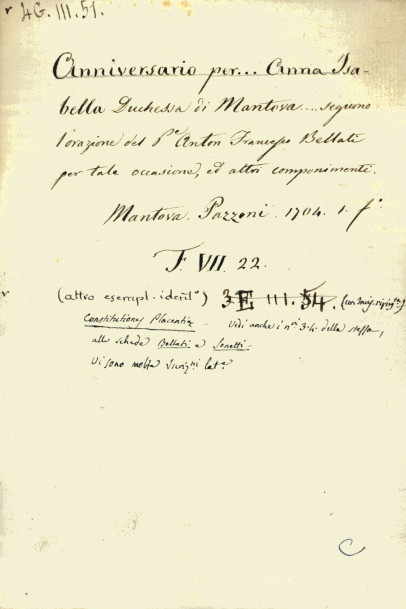 r 4G. III. 51.
Anniversario per... Anna Isa-
bella Duchessa di Mantova.... seguono
l'orazione del P.e Anton Francesco Bellati
per tale occasione, ed altri componimenti.
Mantova. Pazzoni. 1704. 1. fo
F. VII. 22.
r (altro esempl. ident.o) 3.E. III. 54. (con
Constitutiones Placentiæ - Vedi anche i n.i 3.4. della stessa,
alle schede Bellati e Sonetti.
Vi sono molte iscriz.ni lat.e
C